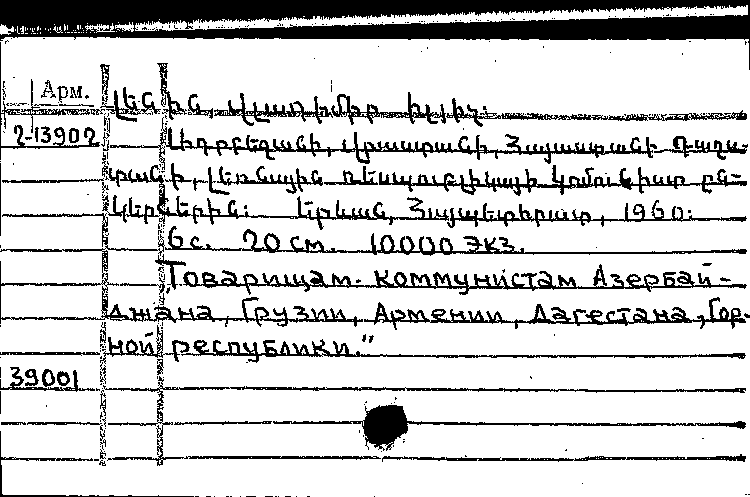 Арм.
Լենին, Վլադիմիր Իլյիչ:
2-13902
Ադրբեջանի, Վրաստանի, Հայաստանի Դաղս-
տանի, Լեռնային ռեսպուբլիկայի կոմունիստ ըն-
կերներին: Երևան, Հայպետհրատ, 1960:
6 с. 20 см. 10000 экз.
„Товарищам-коммунистам Азербай-
джана, Грузии, Армении, Дагестана, Гор-
ной республики."
39001